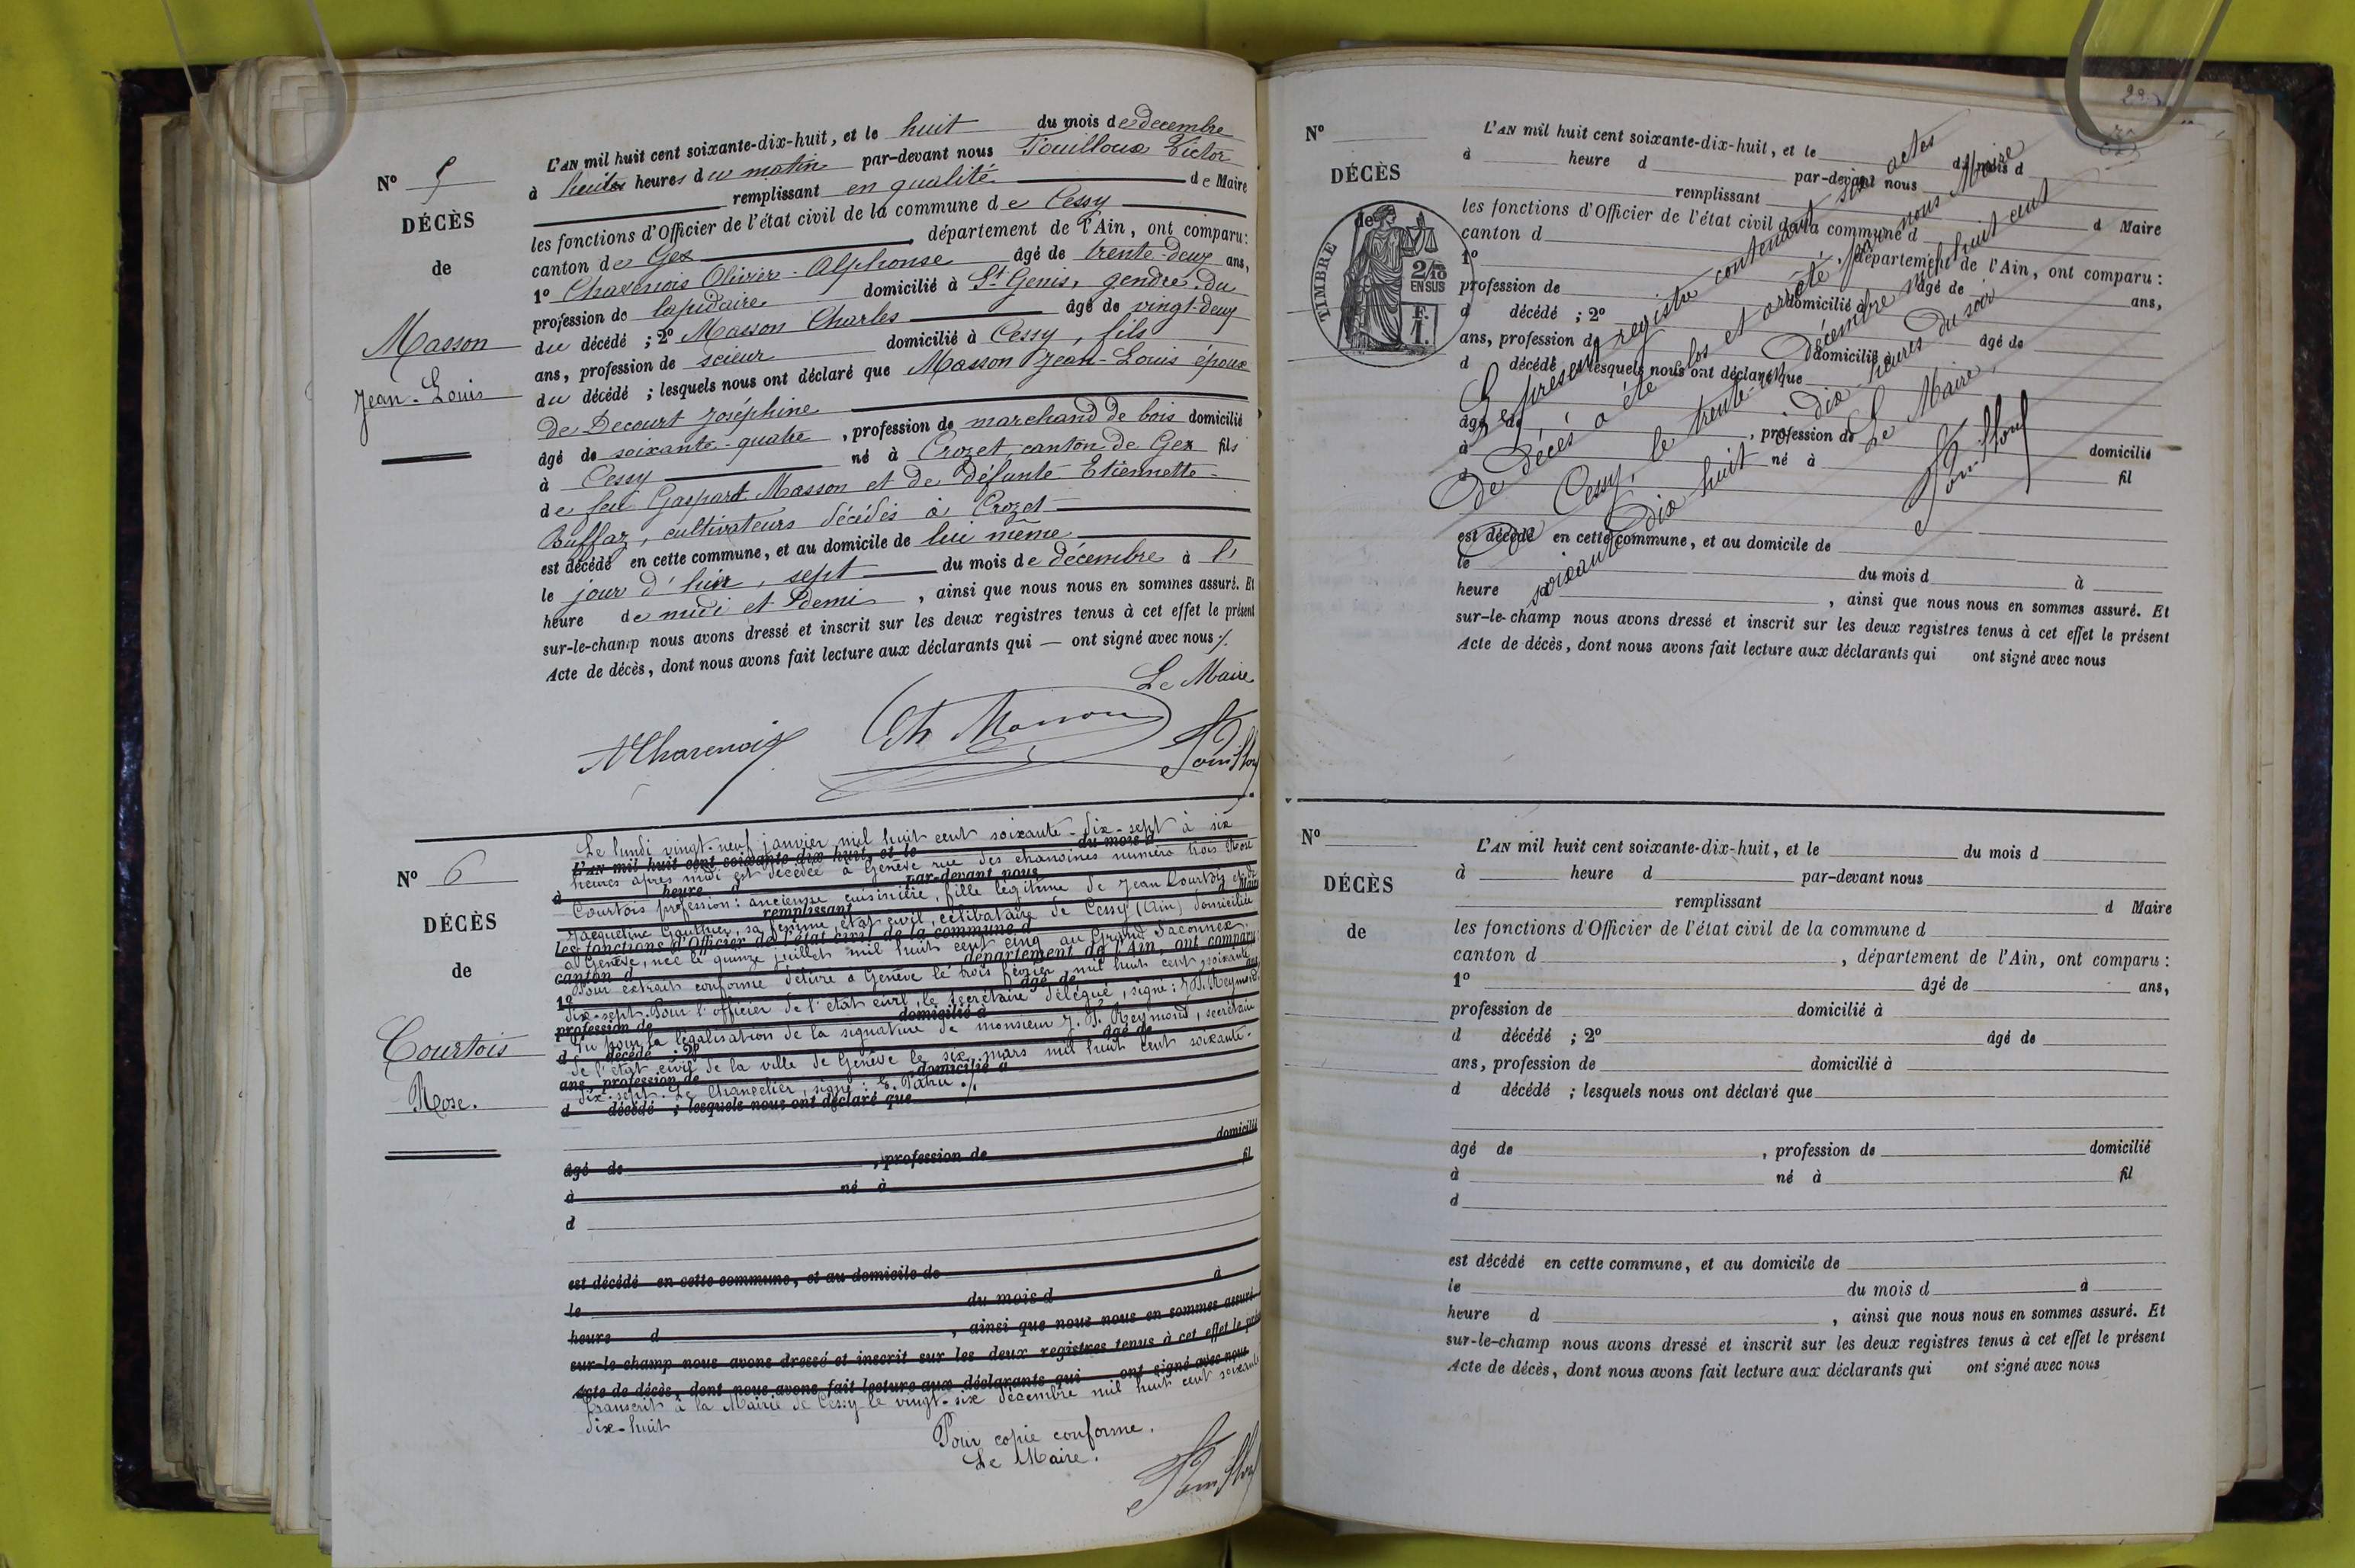 N° 5
DÉCÈS
de
Masson
Jean-Louis
L'AN mil huit cent soixante-dix-huit, et le huit du mois de decembre
à huit heures du matin par-devant nous Fouilloux Victor
remplissant en qualité de Maire
les fonctions d'Officier de l'état civil de la commune de Cessy
canton de Gex, département de l'Ain, ont comparu:
1° Charenois Olivier-Alphonse âgé de trente-deux ans,
profession de lapidaire domicilié à St Genis, gendre du
du décédé ; 2° Masson Charles âgé de vingt-deux
ans, profession de scieur domicilié à Cessy, fils
du décédé ; lesquels nous ont déclaré que Masson Jean-Louis époux
de Decourt Joséphine
âgé de soixante-quatre, profession de marchand de bois domicilié
à Cessy né à Crozet, canton de Gex fils
de feu Gaspard Masson et de défunte Etiennette
Buffaz, cultivateurs décédés à Crozet
est décédé en cette commune, et au domicile de lui même
le jour d'hier, sept du mois de décembre à l'
heure de midi et demi, ainsi que nous nous en sommes assuré. Et
sur-le-champ nous avons dressé et inscrit sur les deux registres tenus à cet effet le présent
Acte de décès, dont nous avons fait lecture aux déclarants qui — ont signé avec nous ./.
Le Maire
ACharenois Ch Masson
N° 6
DÉCÈS
de
Courtois
Rose.
Le lundi vingt-neuf janvier mil huit cent soixante-dix-sept à six
L'AN mil huit cent soixante-dix-huit, et le du mois d
heures après midi est décédée à Genève rue des chanoines numéro trois Rose
à heure d par-devant nous
Courtois profession: ancienne cuisinière, fille légitime de Jean Courtois et de
remplissant d Maire
Jacqueline Gauthier, sa femme, état civil, célibataire de Cessy (Ain) domiciliée
les fonctions d'Officier de l'état civil de la commune d
à Genève, née le quinze juillet mil huit cent cinq au Grand Saconnex.
canton d département de l'Ain, ont comparu
Pour extrait conforme délivré à Genève le trois février mil huit cent soixante
1° âgé de ans,
dix-sept. Pour l'officier de l'état civil, le secrétaire délégué, signé: J. P. Reymond
profession de domicilié à
Vu pour la légalisation de la signature de monsieur J. P. Reymond, secrétaire
d décédé ; 2° âgé de
de l'état civil de la ville de Genève le six mars mil huit cent soixante-
ans, profession de domicilié à
dix-sept. Le Chancelier, signé: E. Patru ./.
d décédé ; lesquels nous ont déclaré que
âgé de , profession de domicilié
à né à fil
d
est décédé en cette commune, et au domicile de
le du mois d à
heure d , ainsi que nous nous en sommes assuré
sur-le-champ nous avons dressé et inscrit sur les deux registres tenus à cet effet le
Acte de décès, dont nous avons fait lecture aux déclarants qui ont signé avec nous
Transcrit à la Mairie de Cessy le vingt-six décembre mil huit cent soixante
dix-huit
Pour copie conforme.
Le Maire.
N°
DÉCÈS
de
TIMBRE
2/10
EN SUS
F.
1.
L'AN mil huit cent soixante-dix-huit, et le du mois d
à heure d par-devant nous
remplissant d Maire
les fonctions d'Officier de l'état civil de la commune d
canton d , département de l'Ain, ont comparu :
1° âgé de ans,
profession de domicilié à
d décédé ; 2° âgé de
ans, profession de domicilié à
d décédé ; lesquels nous ont déclaré que
âgé de , profession de domicilié
à né à fil
d
est décédé en cette commune, et au domicile de
le du mois d à
heure d , ainsi que nous nous en sommes assuré. Et
sur-le-champ nous avons dressé et inscrit sur les deux registres tenus à cet effet le présent
Acte de décès, dont nous avons fait lecture aux déclarants qui ont signé avec nous
Le présent registre contenant six actes
de décès a été clos et arrêté par nous Maire
de Cessy, le trente-un Décembre mil huit cent
soixante dix huit à dix heures du soir
Le Maire,
N°
DÉCÈS
de
L'AN mil huit cent soixante-dix-huit, et le du mois d
à heure d par-devant nous
remplissant d Maire
les fonctions d'Officier de l'état civil de la commune d
canton d , département de l'Ain, ont comparu :
1° âgé de ans,
profession de domicilié à
d décédé ; 2° âgé de
ans, profession de domicilié à
d décédé ; lesquels nous ont déclaré que
âgé de , profession de domicilié
à né à fil
d
est décédé en cette commune, et au domicile de
le du mois d à
heure d , ainsi que nous nous en sommes assuré. Et
sur-le-champ nous avons dressé et inscrit sur les deux registres tenus à cet effet le présent
Acte de décès, dont nous avons fait lecture aux déclarants qui ont signé avec nous